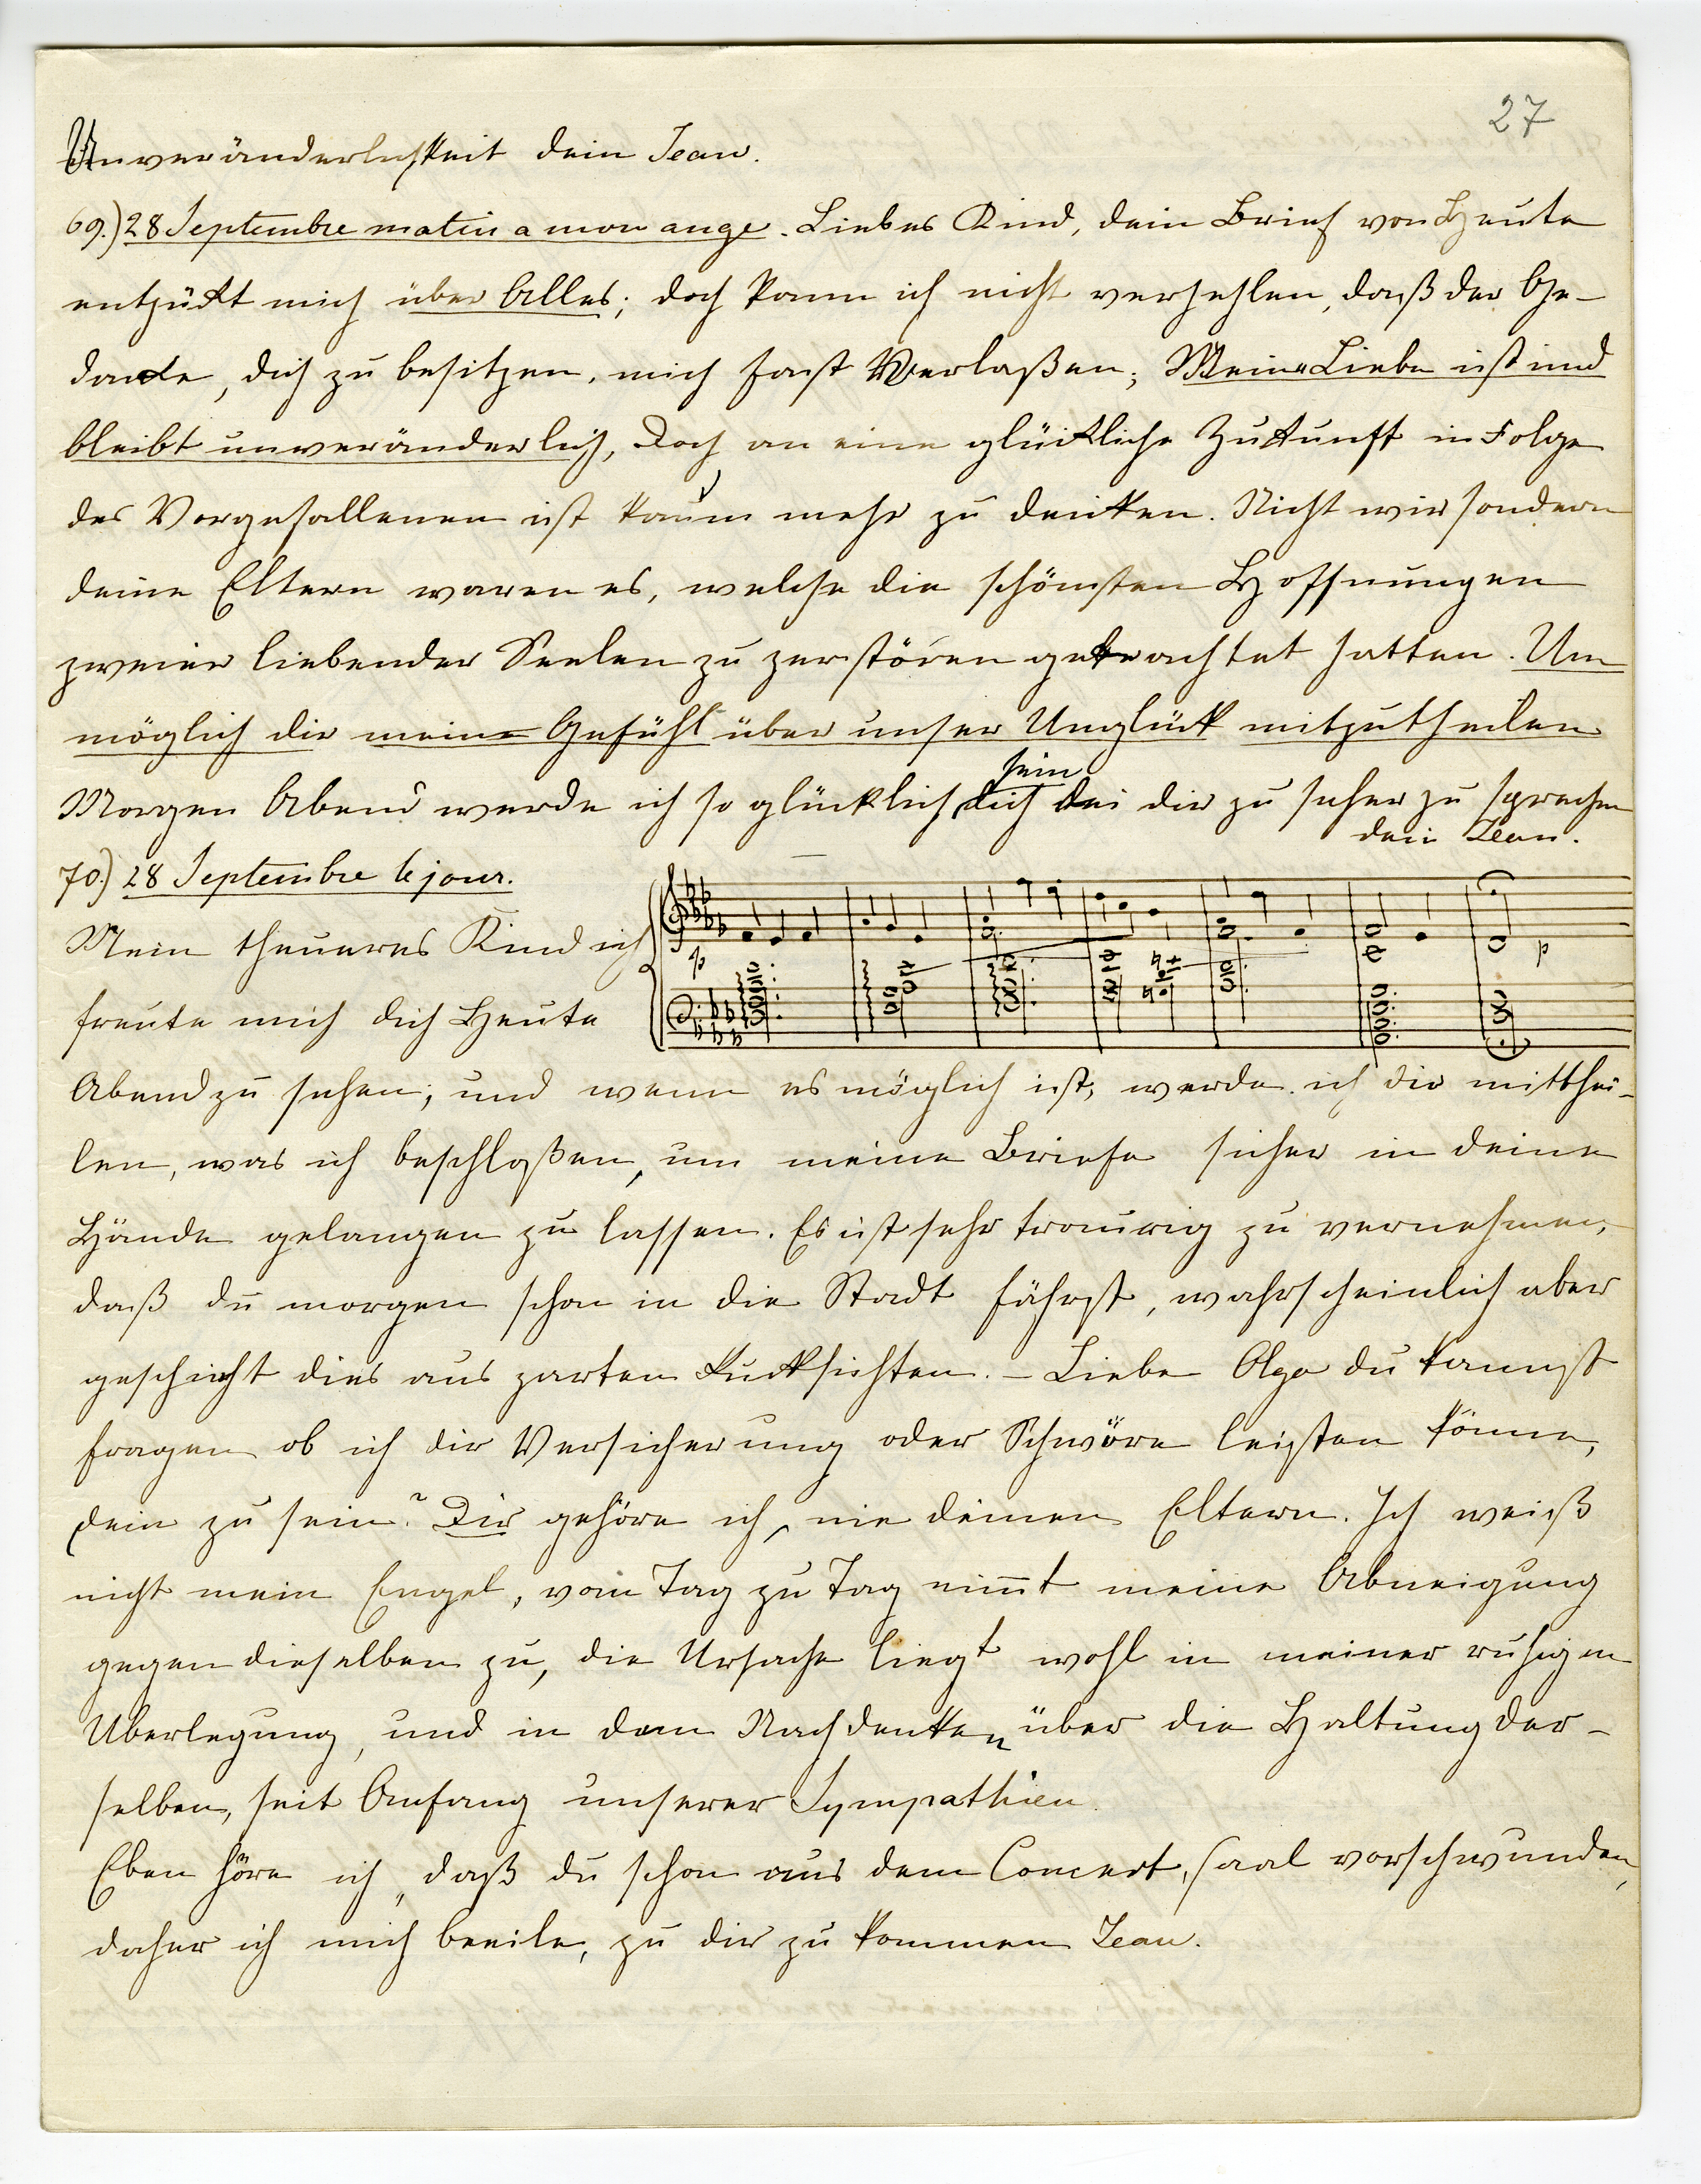 27
Unveränderlichkeit dein Jean.
69.) 28 Septembre matin a mon ange. Liebes Kind, dein Brief von Heute
entzükt mich über Alles; doch kann ich nicht verhehlen, daß der Ge-
danke, dich zu besitzen, mich fast Verlaßen; Meine Liebe ist und
bleibt unveränderlich, doch an eine glückliche Zukunft in Folge
des Vorgefallenen ist kaum mehr zu denken. Nicht wir sondern
deine Eltern waren es, welche die schönsten Hoffnungen
zweier liebender Seelen zu zerstören getrachtet hatten. Un
möglich dir meine Gefühl über unser Unglück mitzutheilen
sein
Morgen Abend werde ich so glücklich dich bei dir zu sehen zu sprechen
dein Jean.
70.) 28 Septembre le jour.
Mein theueres Kind ich
p p
freute mich dich Heute
Abend zu sehen; und wenn es möglich ist, werde ich dir mitthei-
len, was ich beschloßen, um meine Briefe sicher in deine
Hände gelangen zu lassen. Es ist sehr traurig zu vernehmen,
daß du morgen schon in die Stadt fährst, wahrscheinlich aber
geschieht dies aus zarten Rucksichten. – Liebe Olga du kannst
fragen ob ich dir Versicherung oder Schwöre leisten könne,
dein zu sein? Dir gehöre ich, nie deinen Eltern. Ich weiß
nicht mein Engel, vom Tag zu Tag nim̅t meine Abneigung
gegen dieselben zu, die Ursache liegt wohl in meiner ruhigen
Uberlegung, und in dem Nachdenken über die Haltung der-
selben, seit Anfang unserer Sympathien.
Eben höre ich, daß du schon aus dem Concert, saal verschwunden,
daher ich mich beeile, zu dir zu kommen Jean.